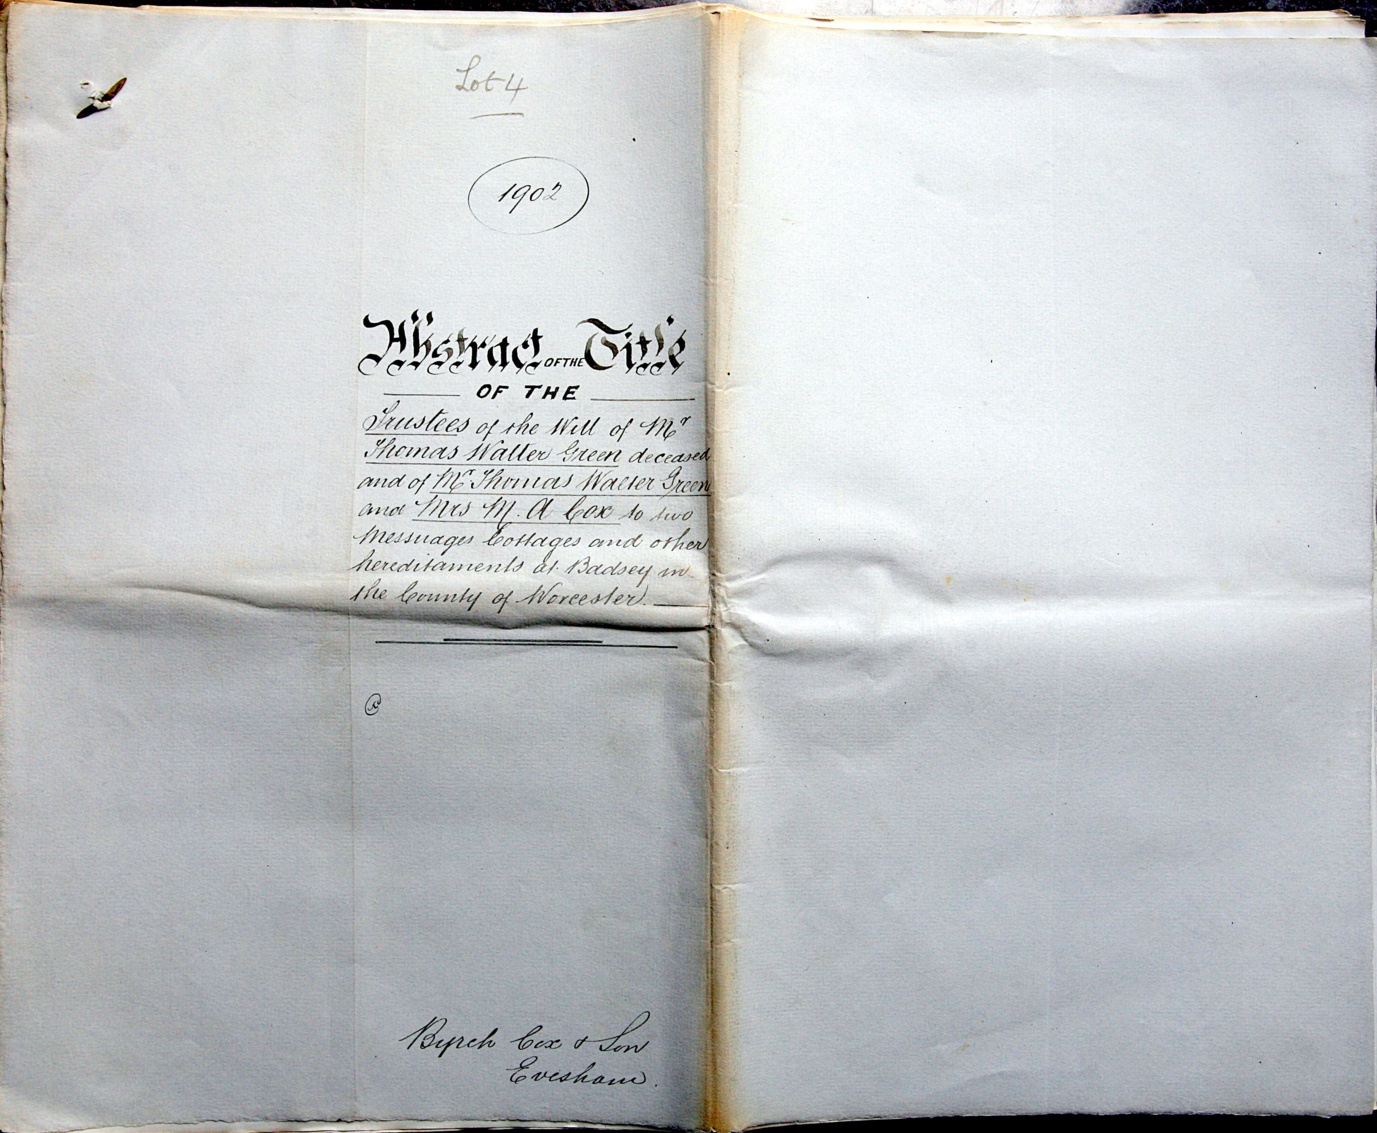 Lot 4
1902
Abstract OF THE Title
OF THE
Trustees of the Will of Mr
Thomas Walter Green deceased
and of Mr Thomas Walter Green
and Mrs M. A Cox to two
Messuages Cottages and other
hereditaments at Badsey in
the County of Worcester.
Byrch Cox & Son
Evesham.